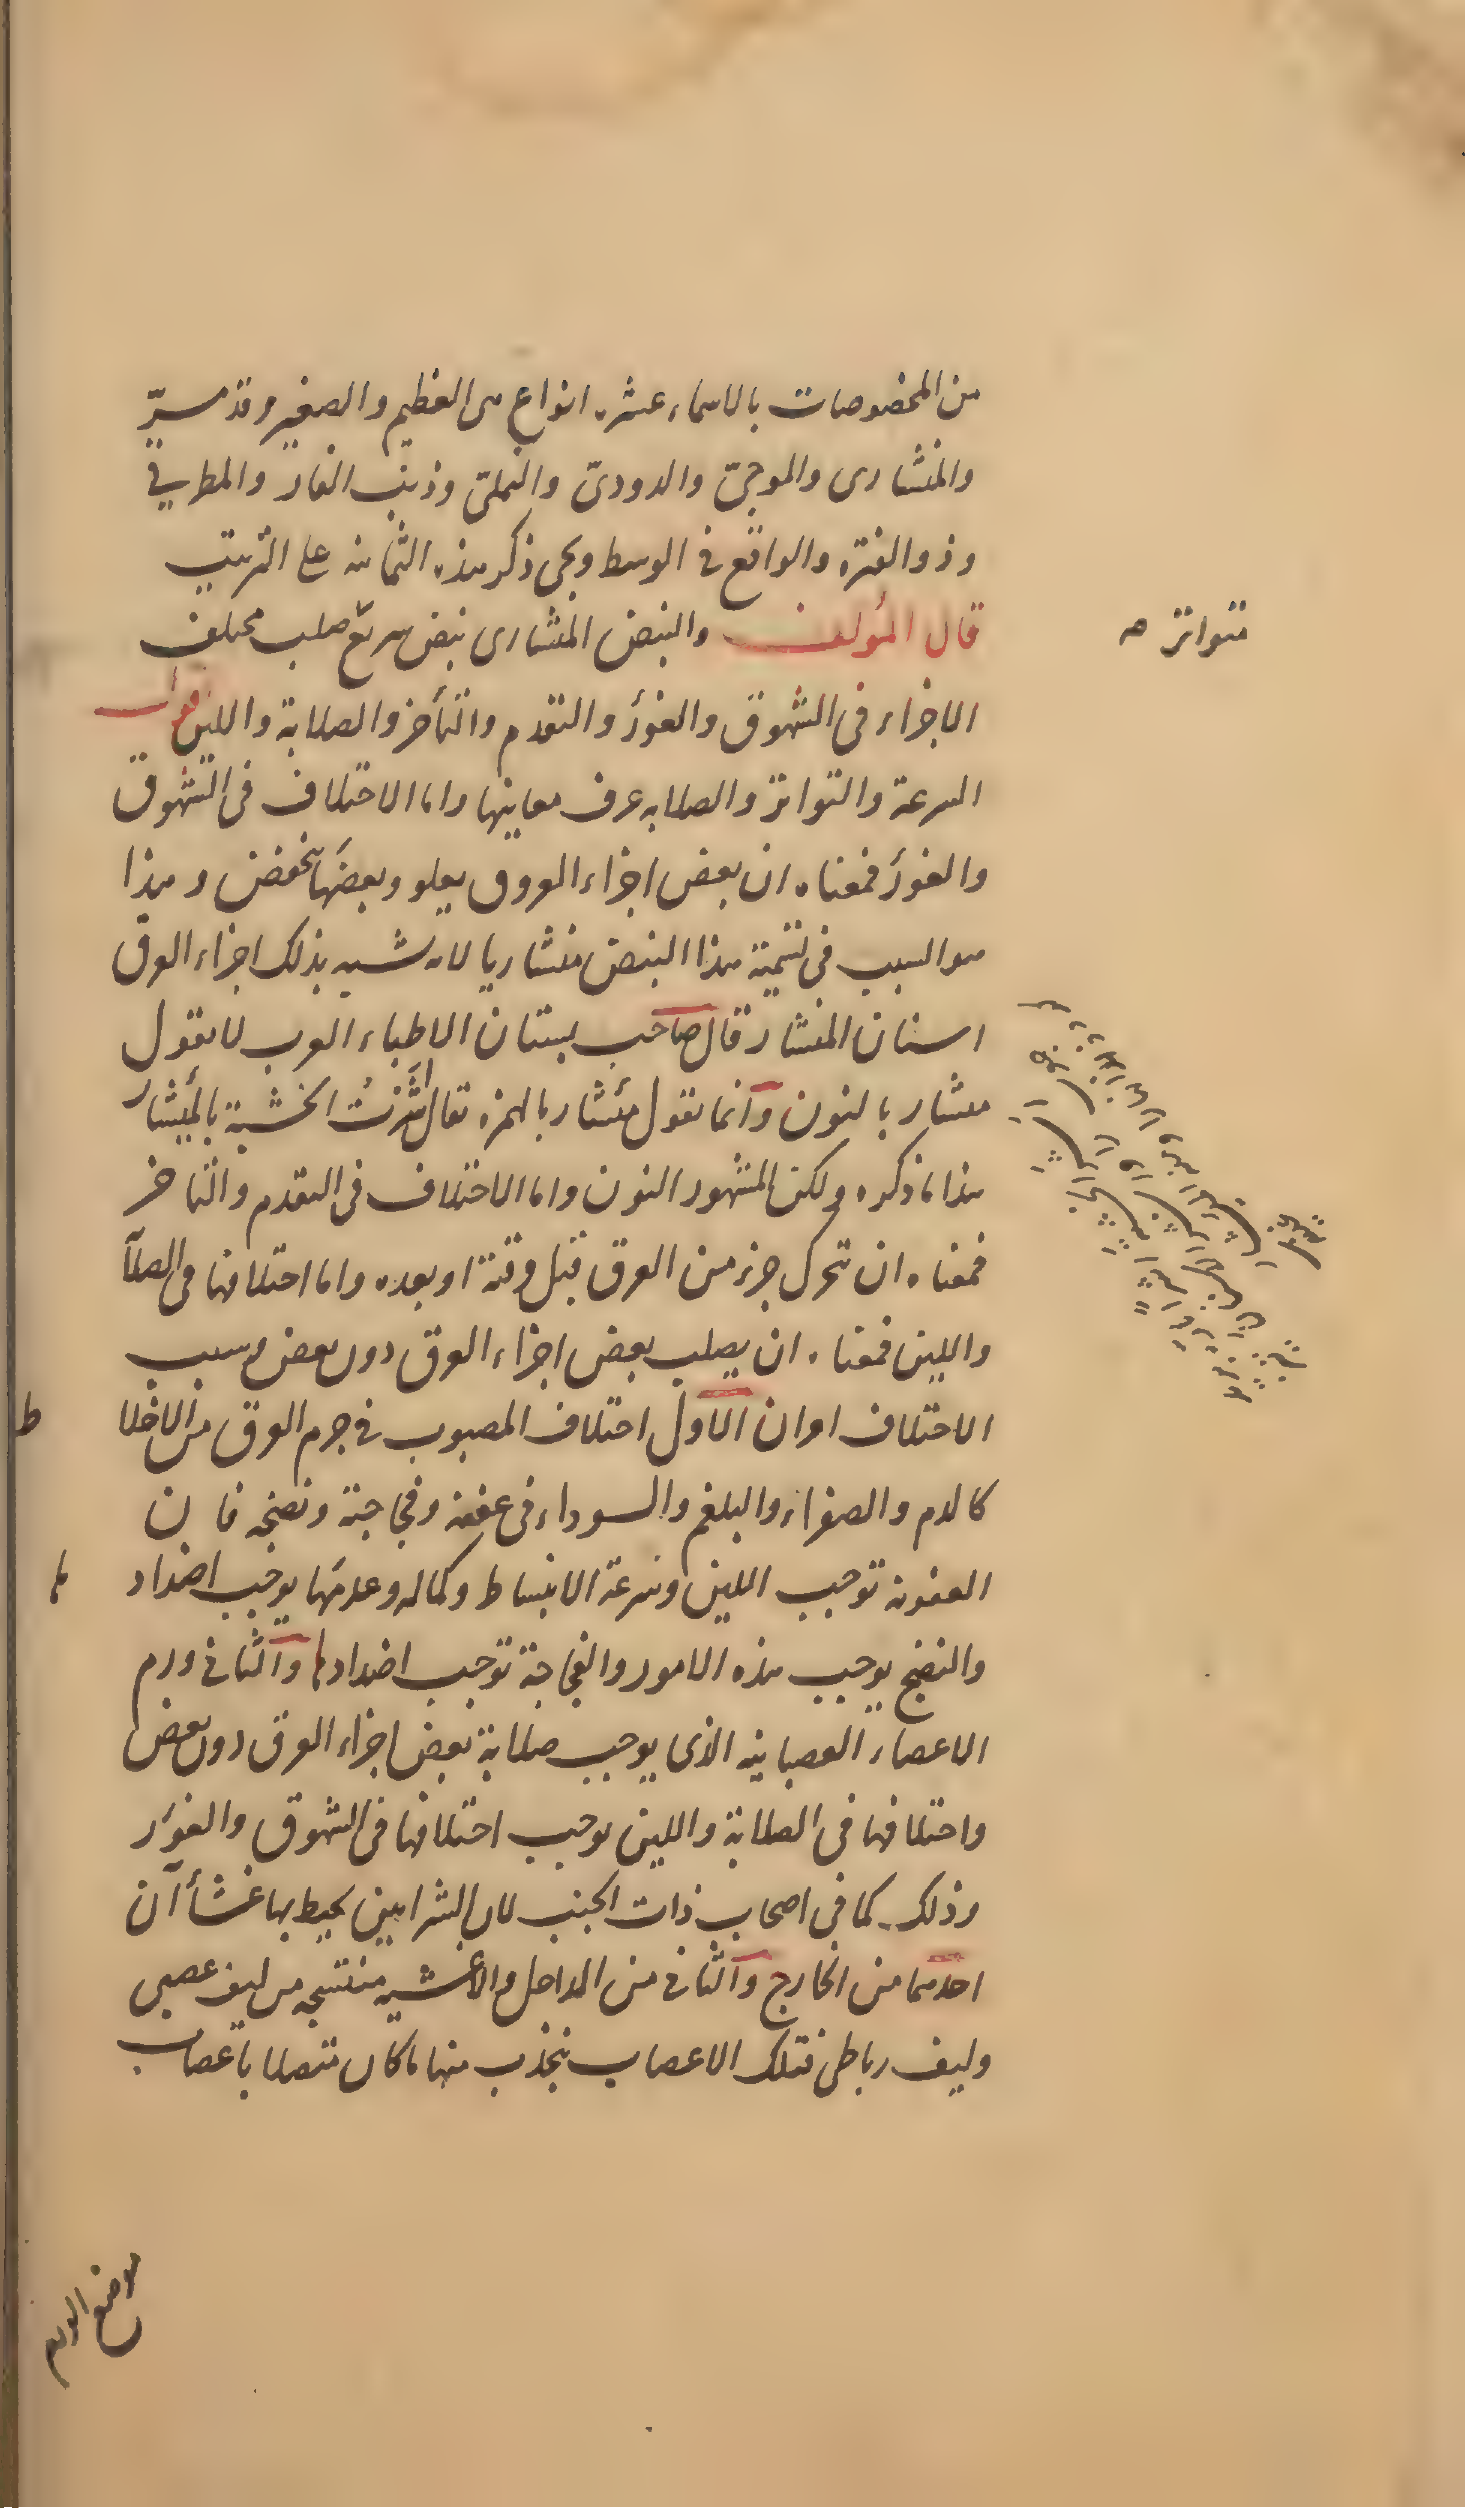 من المخصوصات بالاسماء عشرة انواع هى العظيم والصغير وقد مرّ
والمنشارى والموجىّ والدودىّ والنملىّ وذنب الفار والمطرقى
وذو الفترة والواقع فى الوسط ويجى ذكر هذه الثمانية على الترتيب
قال المؤلف والنبض المنشارى نبض سريع صلب مختلف
متواتر صح
الاجزاء فى الشهوق والغور والتقدم والتأخر والصلابة واللين
السرعة والتواتر والصلابه عرف معاينها واما الاختلاف فى الشهوق
والغور فمعناه ان بعض اجزاء العروق يعلو وبعضها ينخفض وهذا
هو السبب فى تسمية هذا النبض منشاريا لانه شبه بذلك اجزاء العرق
اسنان المنشار قال صاحب بستان الاطباء العرب لا يقول
منشار بالنون وانما يقول مئشار بالهمزه تقال اشرت الخشبة بالمئشار
هذا ما ذكره ولكن المشهور النون واما الاختلاف فى التقدم والتاخر
فمعناه ان تحرك جزء من العرق قبل وقته او بعده واما اختلافها فى الصلا
واللين فمعناه ان يصلب بعض اجزاء العرق دون بعض وسبب
الاختلاف امران الاول اختلاف المصبوب فى جرم العرق من الاخلا
ط
كالدم والصفراء والبلغم والسوداء فى عفنه وفجاجته ونضجه فان
العفونه توجب اللين وسرعة الانبساط وكماله وعدمها يوجب اضداد
ها
والنضج يوجب هذه الامور والفجاجة توجب اضدادها والثانى ورم
الاعضاء العصبانيه الذى يوجب صلابة بعض اجزاء العرق دون بعض
واختلافها فى الصلابة واللين يوجب اختلافها فى الشهوق والغور
وذلك كما فى اصحاب ذات الجنب لان الشرايين يحيط بها غشاآن
احدهما من الخارج والثانى من الداخل والاغشيه منتسجه من ليف عصبى
وليف رباطى فتلك الاعصاب ينجذب منها ما كان متصلا باعصاب
موضع الورم